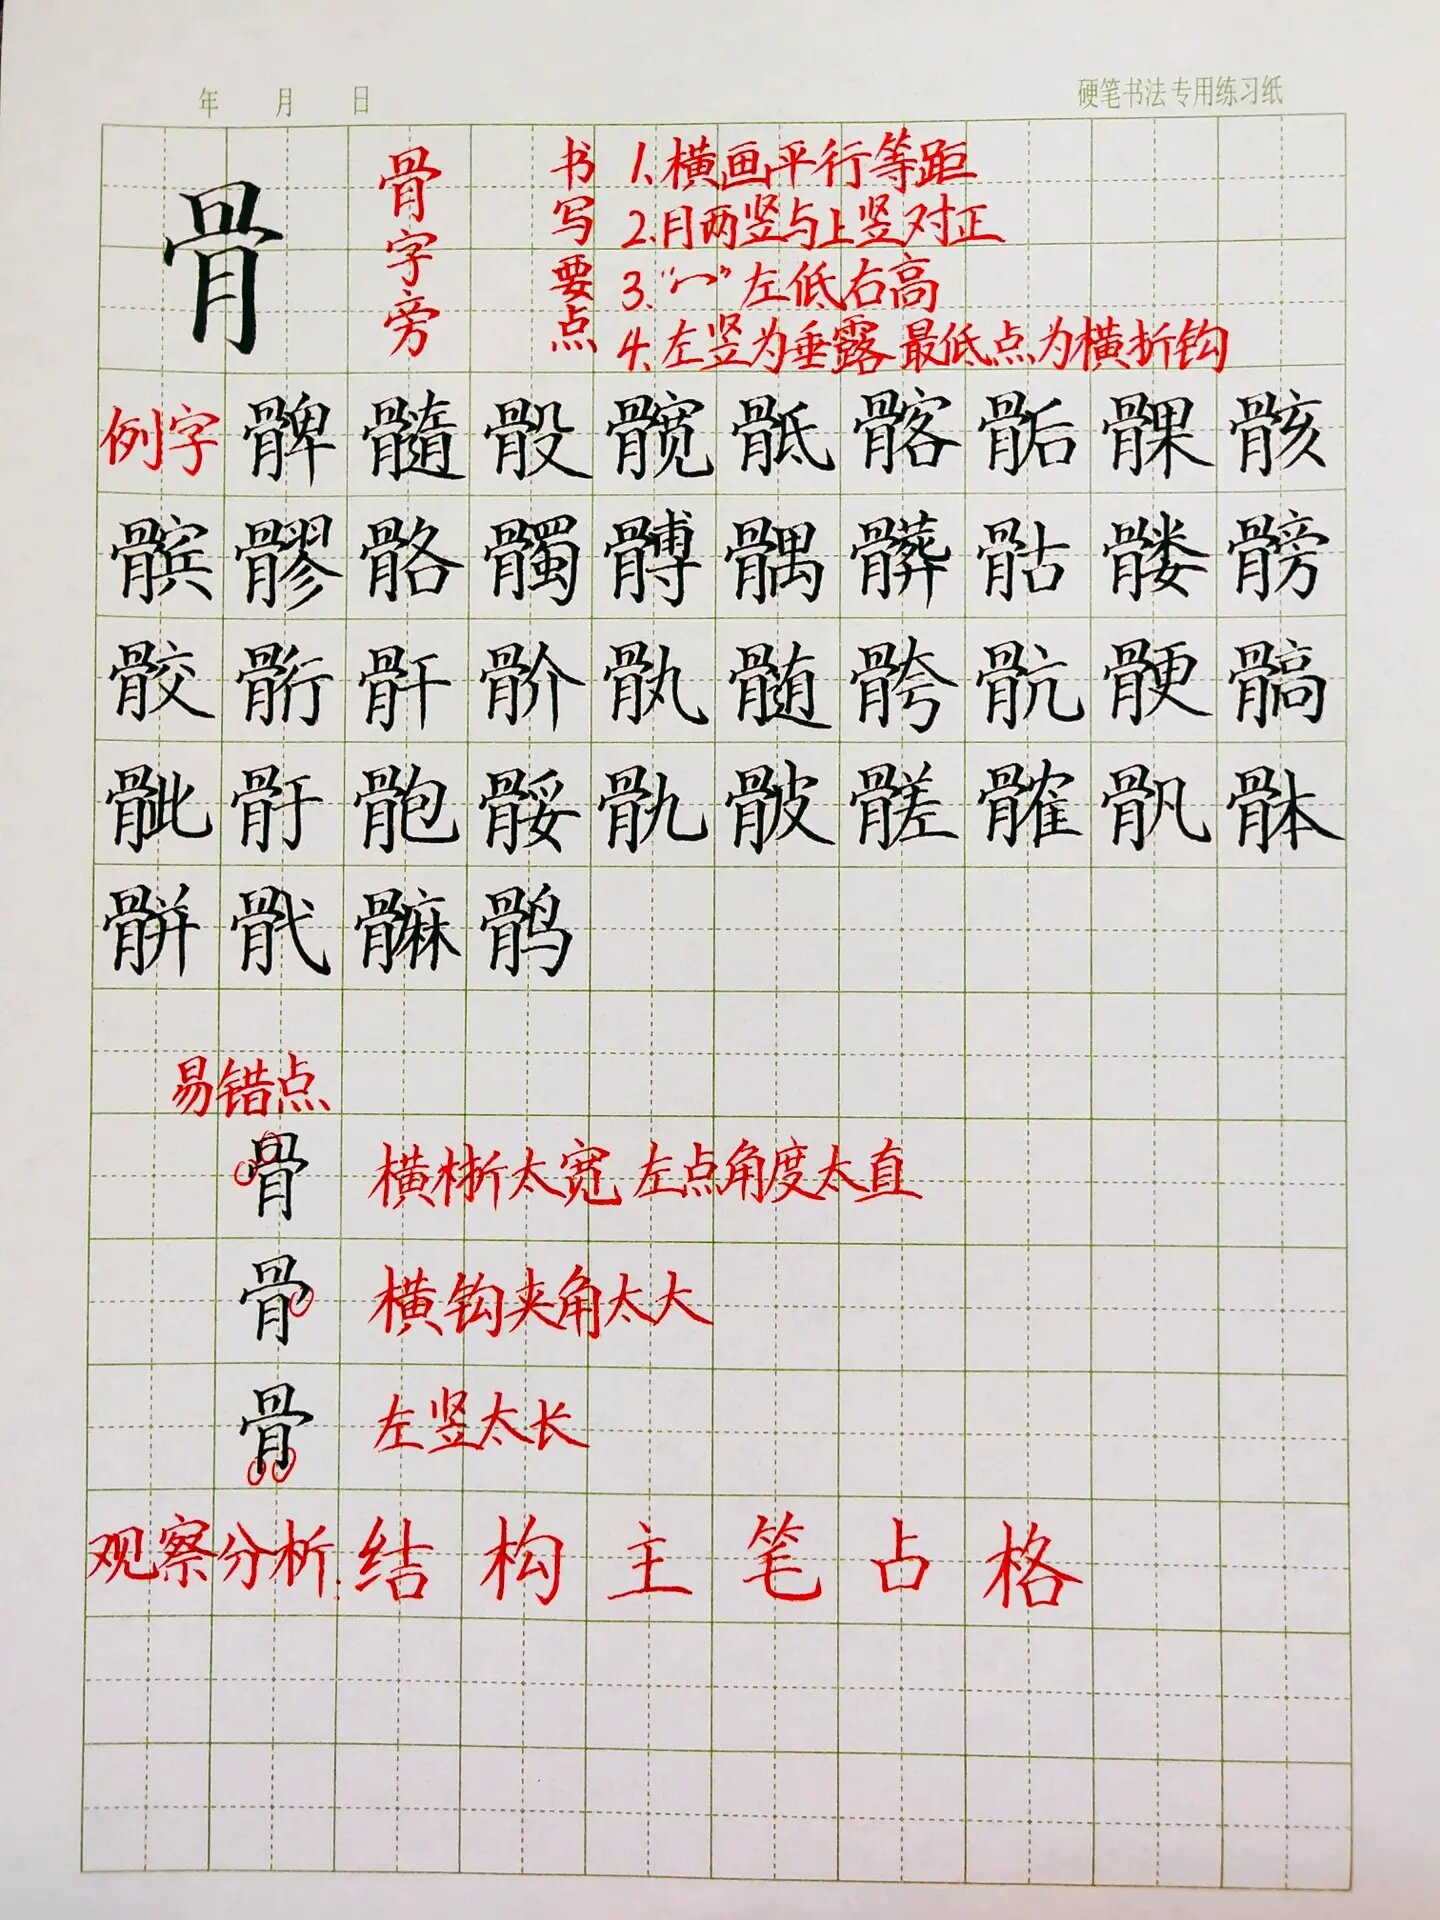 年 月 日 硬笔书法专用练习纸
骨
骨字旁
书写要点
1.横画平行等距
2.月两竖与上竖对正
3.“冖”左低右高
4.左竖为垂露 最低点为横折钩
例字 髀 髓 骰 髋 骶 髂 骺 髁 骸
髌 髎 骼 髑 髆 髃 髒 骷 髅 髈
骹 䯒 骭 骱 骫 髄 骻 骯 骾 髇
骴 骬 骲 骩 骳 髊 体
骿 鹘
易错点
骨 横折太宽 左点角度太直
骨 横钩夹角太大
骨 左竖太长
观察分析：结 构 主 笔 占 格